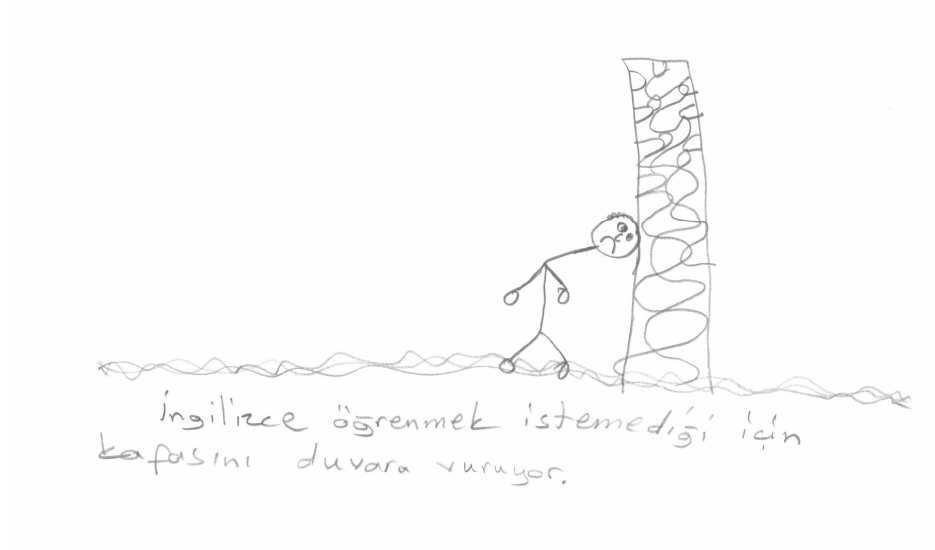 İngilizce öğrenmek istemediği için
kafasını duvara vuruyor.